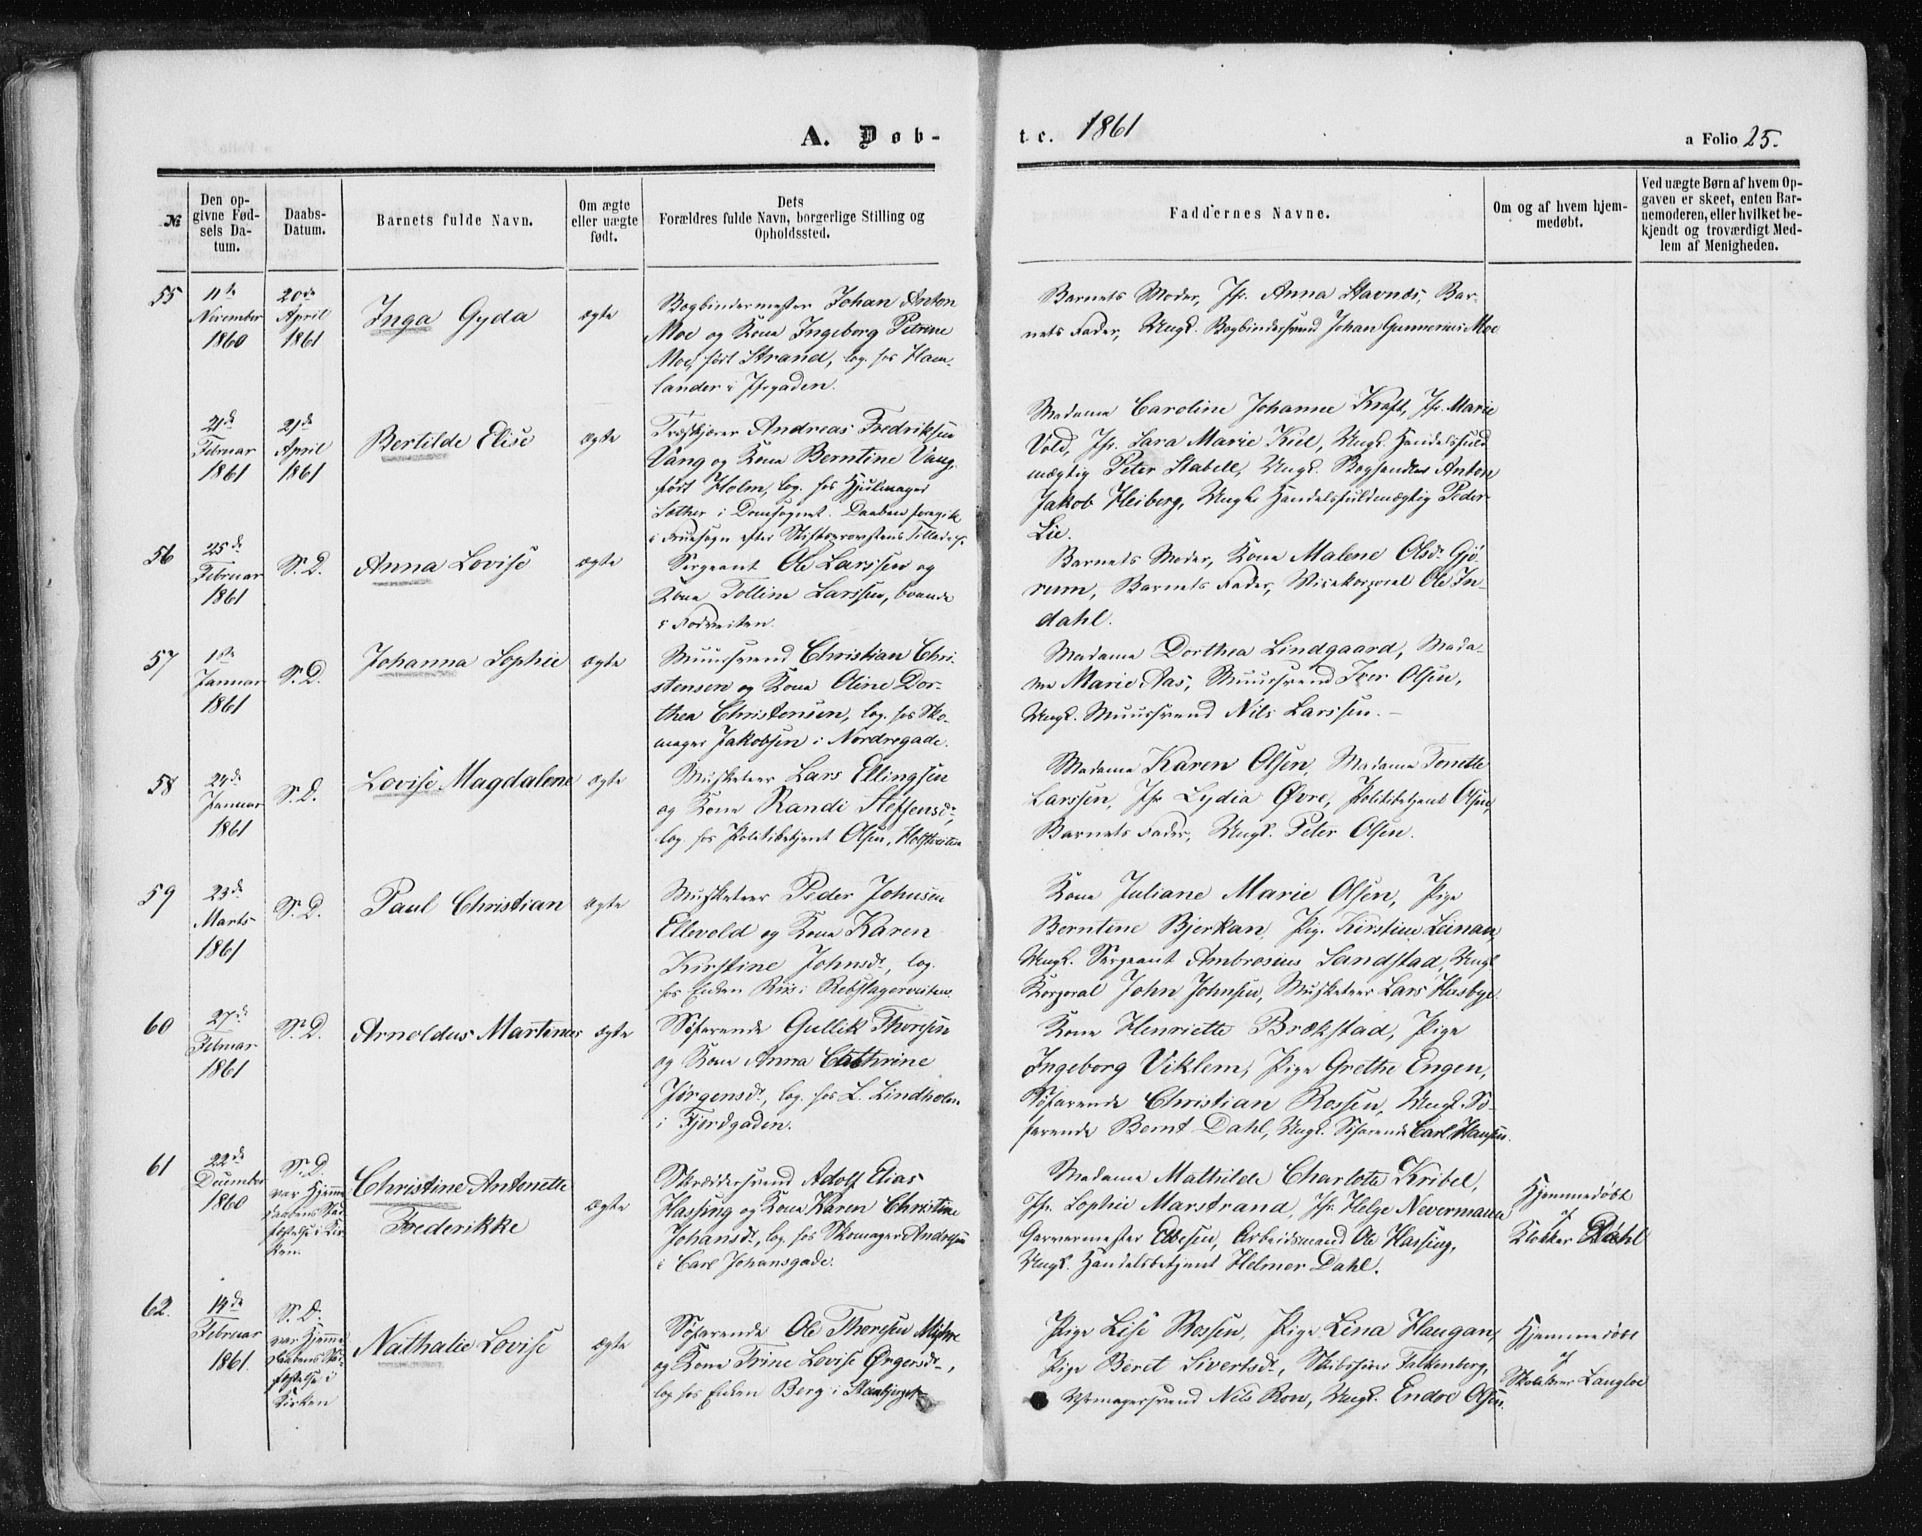 A. Døb-
t e. 1861
a Folio 25.
№
Den op-
givne Fød-
sels Da-
tum.
Daabs-
Datum.
Barnets fulde Navn.
Om ægte
eller uægte
født.
Dets
Forældres fulde Navn, borgerlige Stilling og
Opholdssted.
Faddernes Navne.
Om og af hvem hjem-
medøbt.
Ved uægte Børn af hvem Op-
gaven er skeet, enten Bar-
nemoderen, eller hvilket be-
kjendt og troværdigt Med-
lem af Menigheden.
55
11te
November
1860
20de
April
1861
Inga Gyda
ægte
Bogbindermester Johan Anton
Moe og Kone Ingeborg Petrine
Moe, født Strand, log. hos Ham-
lander i Jfrgaden.
Barnets Moder, Jfr. Anna Stavnes, Bar-
nets Fader, Ungk. Bogbindersvend Johan Gunnerius Moe
21de
Februar
1861
21de
April
1861
Bertilde Elise
ægte
Andreas Fredriksen
Vang og Kone Berntine Vang,
født Holm, log. hos Hjulmager
Sæther i Domsognet. Daaben foregik
i Fruesogn efter Stiftsprovstens Tilladelse.
Madame Caroline Johanne Kraft, Jfr. Marie
Vold, Jfr. Sara Marie Kiel, Ungk. Handelsfuld-
mægtig Peter Stabell, Ungk. Anton
Jakob Heiberg, Ungk. Handelsfuldmægtig Peder
Lie.
56
25de
Februar
1861
S. D.
Anna Lovise
ægte
Sergeant Ole Larssen og
Kone Tolline Larssen, boende
i Fodveiten.
Barnets Moder, Kone Malene Olsdr. Gjö-
rum, Barnets Fader, Vicekorporal Ole In-
dahl.
57
1ste
Januar
1861
S. D.
Johanna Sophie
ægte
Muursvend Christian Chri-
stensen og Kone Oline Dor-
thea Christensen, log. hos Sko-
mager Jakobsen i Nordregade.
Madame Dorthea Lindgaard, Mada-
me Marie Aas, Muursvend Iver Olsen,
Ungk. Muursvend Nils Larssen. –
58
24de
Januar
1861
S. D.
Lovise Magdalene
ægte
Musketeer Lars Ellingsen
og Kone Randi Steffensdr.,
log. hos Politibetjent Olsen, Holstveiten
Madame Karen Olsen, Madame Tonette
Larssen, Jfr. Lydia Øvre, Politibetjent Olsen,
Barnets Fader, Ungk. Peter Olsen.
59
23de
Marts
1861
S. D.
Paul Christian
ægte
Musketeer Peder Johnsen
Ellevold og Kone Karen
Kirstine Johnsdr., log.
hos Enken Riis i Rebslagerveiten
Kone Juliane Marie Olsen, Pige
Berntine Bjerkan, Pige Kirstine Leinan,
Ungk. Sergeant Ambrosius Sandstad, Ungk
Korporal John Johnsen, Musketeer Lars Husbye
60
27de
Februar
1861
S. D.
Arnoldus Martinus
ægte
Søfarende Gullik Thoresen
og Kone Anna Cathrine
Jørgensdr., log. hos L. Lindholm
i Fjordgaden.
Kone Henriette Brækstad, Pige
Ingeborg Viklem, Pige Grethe Engen,
Søfarende Christian Rossen, Ungk. Sø-
farende Bernt Dahl, Ungk. Søfarende Carl Hansen.
61
22de
December
1860
S. D.
var Hjemme-
daabens Stad-
fæstelse i Kir-
ken.
Christine Antonette
Frederikke
ægte
Skræddersvend Adolf Elias
Hassing og Kone Karen Christine
Johansdr., log. hos Skomager Andresen
i Carl Johansgade.
Madame Mathilde Charlotte Kribel,
Jfr. Sophie Marstrand, Jfr. Helge Nevermann
Garvermester Ellesen, Arbeidsmand Ole Hassing,
Ungk. Handelsbetjent Helmer Dahl.
Hjemmedøbt
af
Klokker Dahl
62.
14de
Februar
1861.
S. D.
var Hjemme-
daabens Stad-
fæstelse i
Kirken
Nathalie Lovise
ægte
Søfarende Ole Thoresen
og Kone Trine Lovise Ørgersdr.,
log. hos Enken Berg i Steenbjerget
Pige Lise Rossen, Pige Lina Haugan,
Pige Beret Sivertsdr., Falkenberg,
Uhrmagersvend Nils Ron, Ungk. Endre Olsen.
Hjemmedøbt
af
Skolelærer Langloe